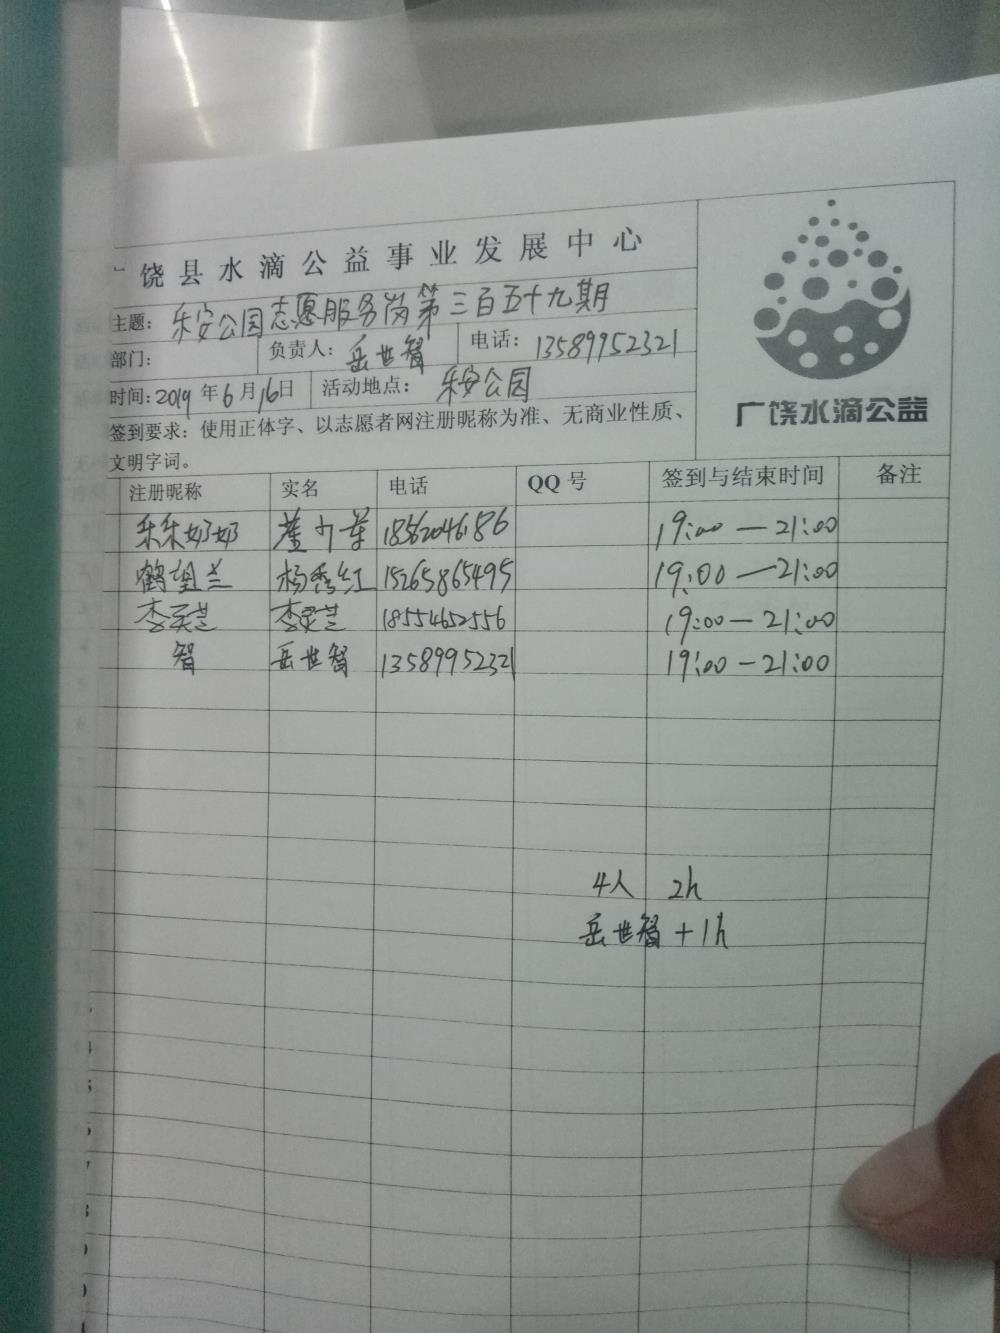 饶县水滴公益事业发展中心
主题：乐安公园志愿服务岗第三百五十九期
部门： 负责人：岳世智 电话：13589952321
时间：2019年6月16日 活动地点：乐安公园
签到要求：使用正体字、以志愿者网注册昵称为准、无商业性质、
文明字词。
广饶水滴公益
注册昵称 实名 电话 QQ号 签到与结束时间 备注
乐乐奶奶 18562046186 19:00—21:00
鹤望兰 杨秀红 15265865495 19:00—21:00
李灵芝 李灵芝 18554652556 19:00—21:00
智 岳世智 13589952321 19:00—21:00
4人 2h
岳世智+1h